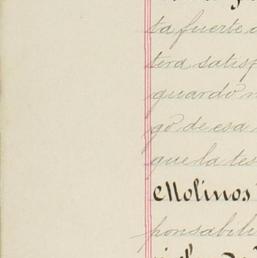 ta fuerte
terá satisf
guardo
go de esa
que la tes
Molinos
ponsabili